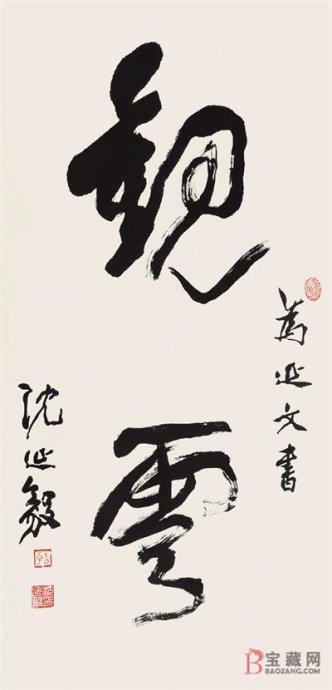 為延文書
觀雲
沈延毅
宝藏网
BAOZANG.COM